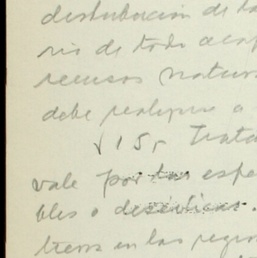 distribución de la
rio de todo acap
recursos natura
debe realizarse a
15, Trata
vale por las espe
bles o desérticas.
treros en las region